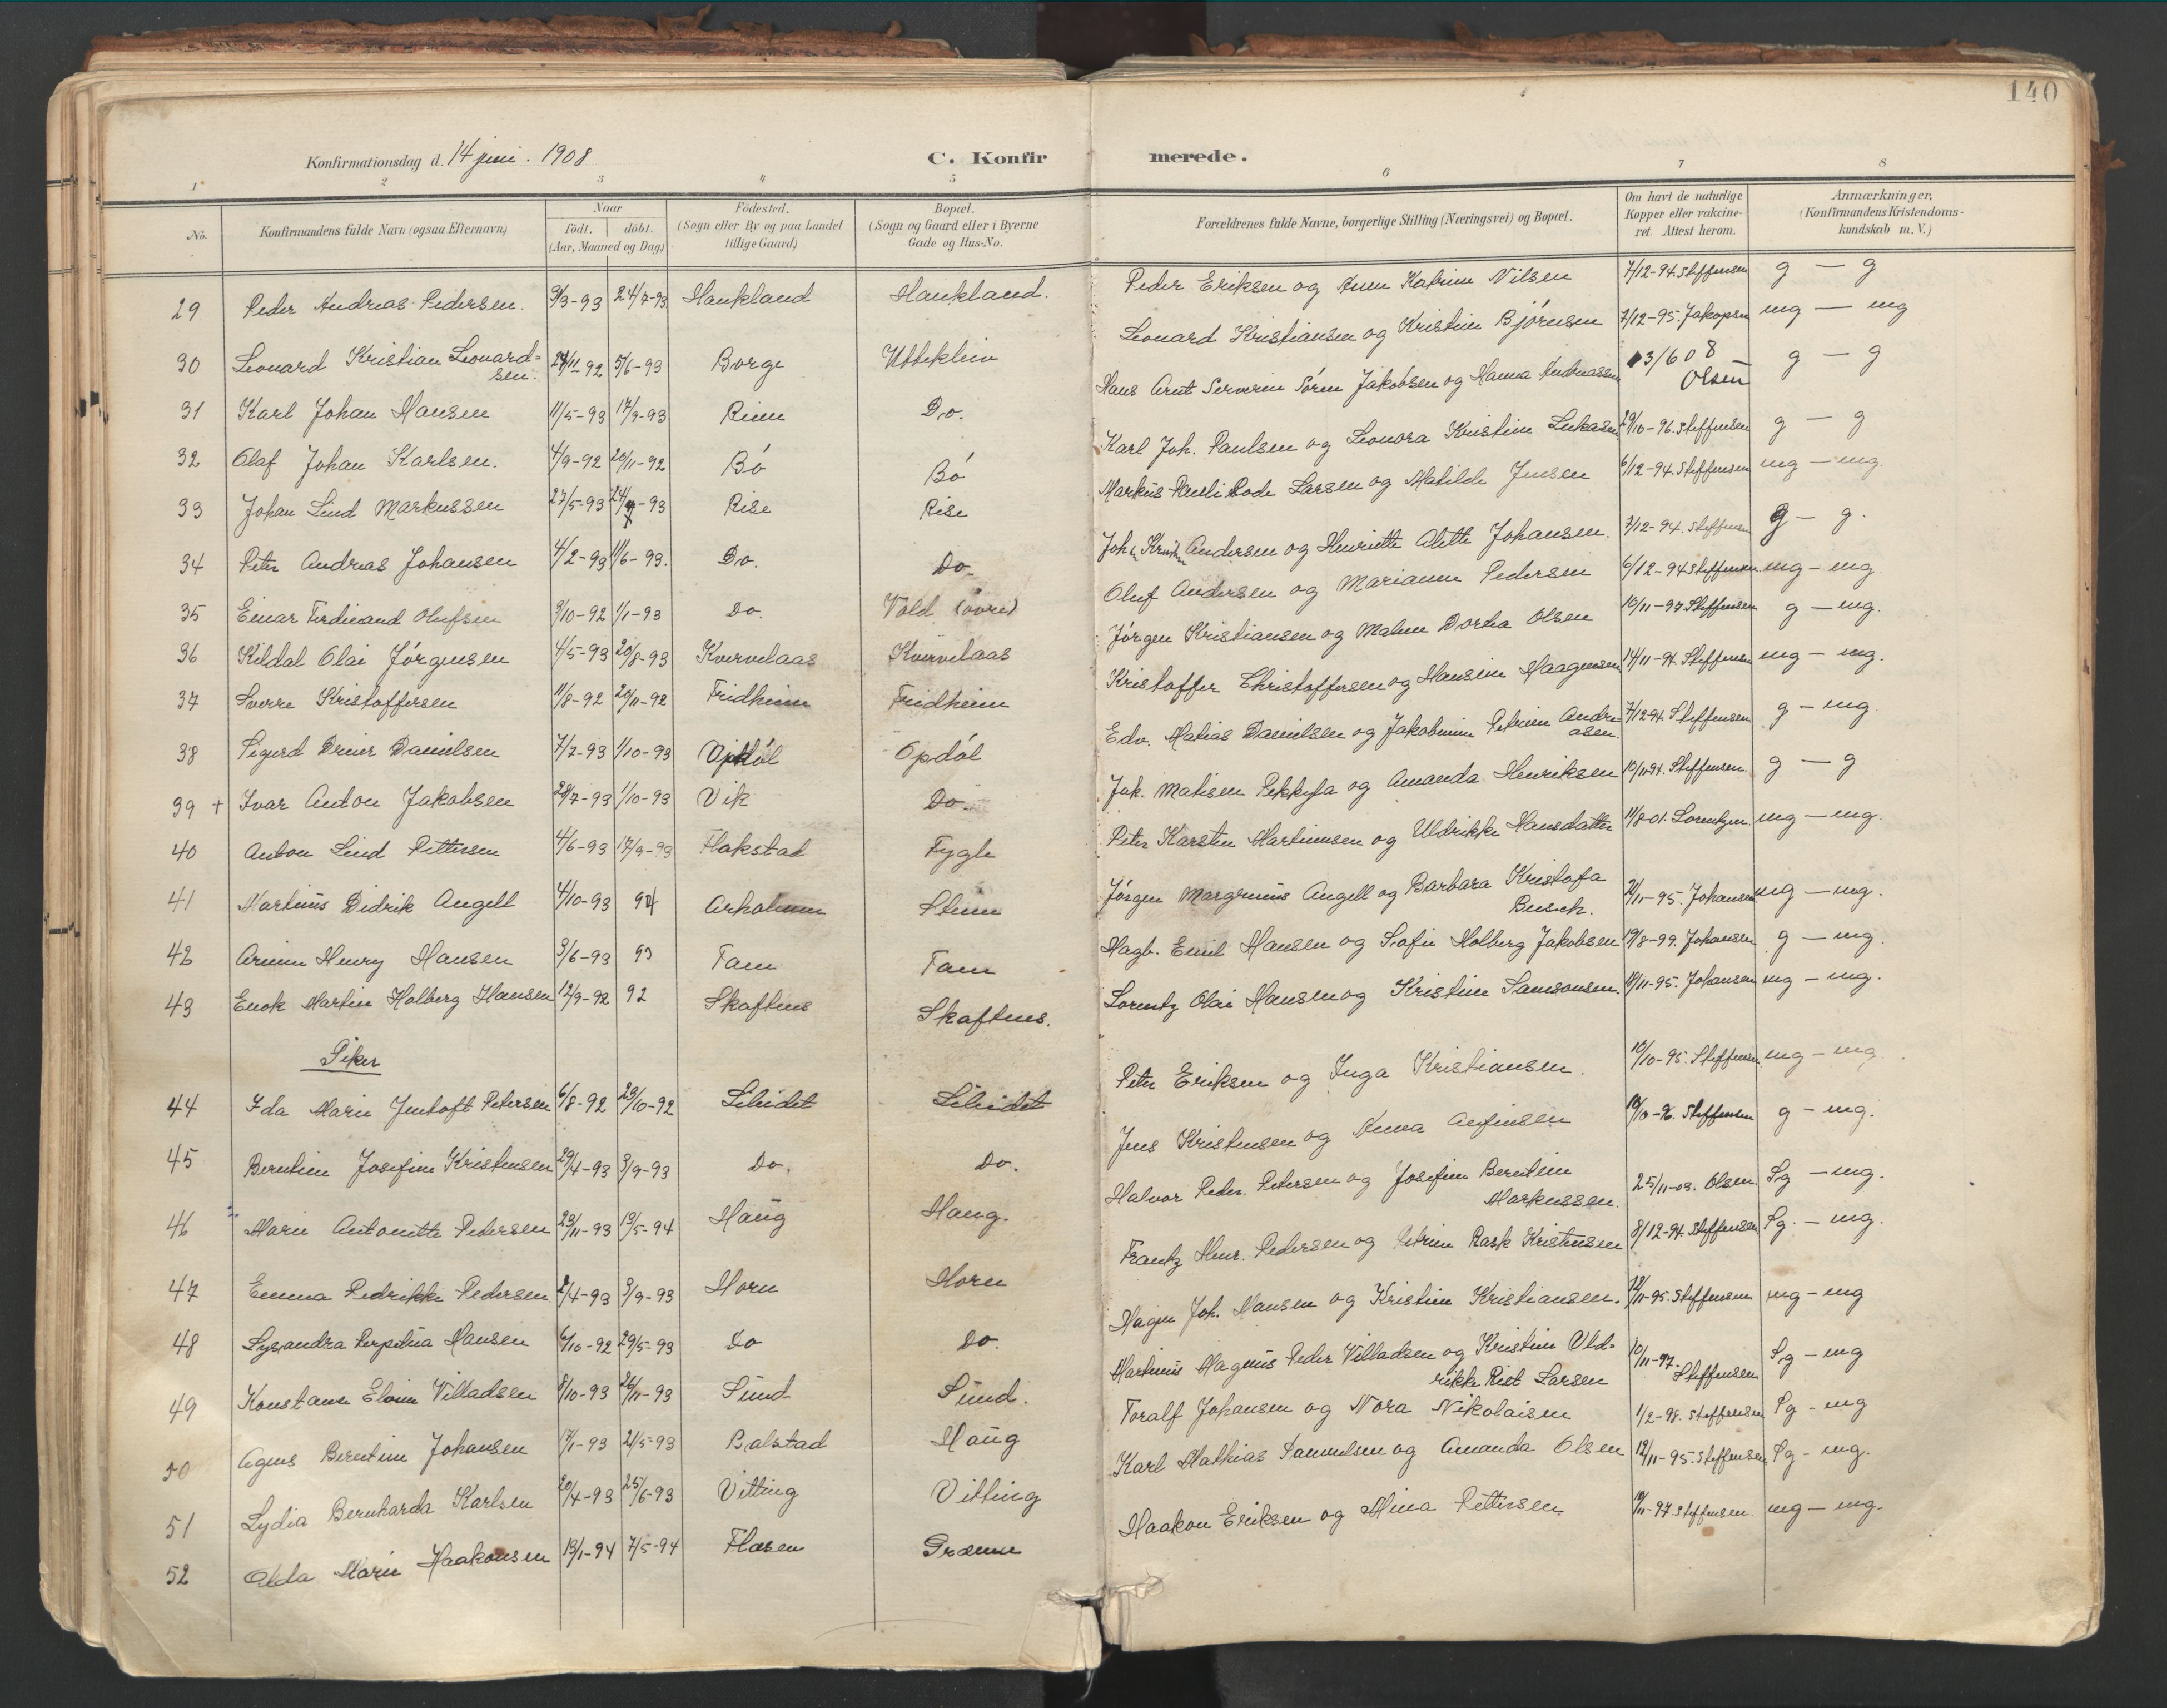 140
Konfirmationsdag d. 14 juni. 1908 C. Konfirmerede.
1 2 3 4 5 6 7 8
No.
Konfirmandens fulde Navn (ogsaa Efternavn)
Naar
födt. döbt.
(Aar, Maaned og Dag)
Födested.
(Sogn eller By og paa Landet
tillige Gaard)
Bopæl.
(Sogn og Gaard eller i Byerne
Gade og Hus-No.
Forældrenes fulde Navne, borgerlige Stilling (Næringsvei) og Bopæl.
Om havt de naturlige
Kopper eller vakcine-
ret. Attest herom.
Anmærkninger,
(Konfirmandens Kristendoms-
kundskab m. V.)
29 Peder Andreas Pedersen. 3/3-93 24/7-93 Haukland Haukland. Peder Eriksen og Anna Katrine Nilsen 7/12-94. Steffensen g — g
30 Leonard Kristian Leonard=
sen. 24/11-92 5/6-93 Borge Utteklein Leonard Kristiansen og Kristine Bjórnsen 7/12-95. Jakopsen mg — mg
31 Karl Johan Hansen 11/5-93 17/9-93 Do. Hans Arnt Serverin Sóren Jakobsen og Hanna Andreassen 13/6 08
Olsen g — g
32 Olaf Johan Karlsen. 4/9-92 20/11-92 Bó Bó Karl Joh. Paulsen og Leonora Kristine Lukasen 29/10-96. Steffensen g — g
33 Johan Lind Markussen 27/5-93 -93 Rise Rise Markus Pauli Rode Larsen og Matilde Jensen 6/12-94. Steffensen mg — mg.
34 Peter Andreas Johansen 4/2-93 11/6-93. Do. Do. Andersen og Henriette Alette Johansen. 7/12-94. Steffensen g — g.
35 Einar Ferdinand Olufsen 3/10-92 1/1-93 Do. Vold (óvre) Oluf Andersen og Marianne Pedersen 6/12-94 Steffensen mg — mg.
36 Kildal Olai Jórgensen 4/5-93 20/8-93 Kvervelaas Kvervelaas Jórgen Kristiansen og Malene Dortea Olsen 10/11-97 Steffensen g — mg.
37 Sverre Kristoffersen 11/8-92 20/11-92 Fridheim Fridheim Kristoffer Christoffersen og Hansine Haagensen 14/11-94. Steffensen mg — mg.
38 Sigurd Dreier Danielsen 7/7-93 1/10-93 Opdól Opdól Edv. Matias Danielsen og Jakobine Petrine Andre=
asen. 7/12 94. Steffensen g — mg.
39 + Ivar Anton Jakobsen 28/7-93 1/10-93 Vik Do. Jak. Matisen og Amanda Henriksen 10/11 94. Steffensen g — g
40 Anton Lind Pettersen 4/6-93 17/9-93 Flakstad Fygle Peter Karsten Martinusen og Uldrikke Hansdatter 11/8-01. Lorentzen mg — mg.
41 Martinus Didrik Angell 4/10-93 94 Arholmen Stene Jórgen Margrinus Angell og Barbara Kristofa
Busch. /11-95. Johansen mg — mg.
42 Henry Hansen 3/6-93 93 Tam Tam Hagb. Emil Hansen og Sofie Holberg Jakobsen 19/8-99. Johansen g — mg.
43 Enok Martin Holberg Hansen 12/9-92 92 Skaftnes Skaftnes. Lorentz Olai Hansen og Kristine Samsonsen. 18/11-95. Johansen mg — mg.
Piker
44 Ida Marie Jentoft Petersen 6/8-92 29/10-92 Leknes Peter Eriksen og Inga Kristiansen. 10/10-95. Steffensen mg — mg.
45 Berntine Josefine Kristensen 29/4-93 3/9-93 Do. Do. Jens Kristensen og Anna Arfinsen Steffensen g — mg.
46 Marie Antonette Pedersen 23/11-93 13/5-94 Haug Haug. Halvor Peder Petersen og Josefine Berntine
Markussen. 25/11-03. Olsen Sg — mg.
47 Emma Pedrikke Pedersen 2/4-93 3/9-93 Horn Horn Frantz Henr. Pedersen og Petrine Rask Kristensen 8/12-94 Steffensen Sg. — mg.
48 Lysandra Perpetua Hansen 6/10-92 29/5-93 Do Do. Hagen Joh. Hansen og Kristine Kristiansen. 12/11-95. Steffensen mg — mg
49 Konstanse Elvine Villadsen 8/10-93 26/11-93 Sund Sund. Martinus Magnus Peder Villadsen og Kristine Uld=
rikke Riet Larsen 10/11-97.
Steffensen Sg — mg
50 Agnes Berntine Johansen 17/1-93 21/5-93 Balstad Haug Toralf Johansen og Nora Nikolaisen 1/2-98. Steffensen Sg — mg
51 Lydia Bernharda Karlsen 20/4-93 25/6-93 Vitting Vitting Karl Mathias Samuelsen og Amanda Olsen 12/11-95. Steffensen Sg — mg.
52 Alda Marie Haakonsen 13/1-94 7/5-94 Flæsen Haakon Eriksen og Mina Pettersen 10/11-97. Steffensen mg — mg.